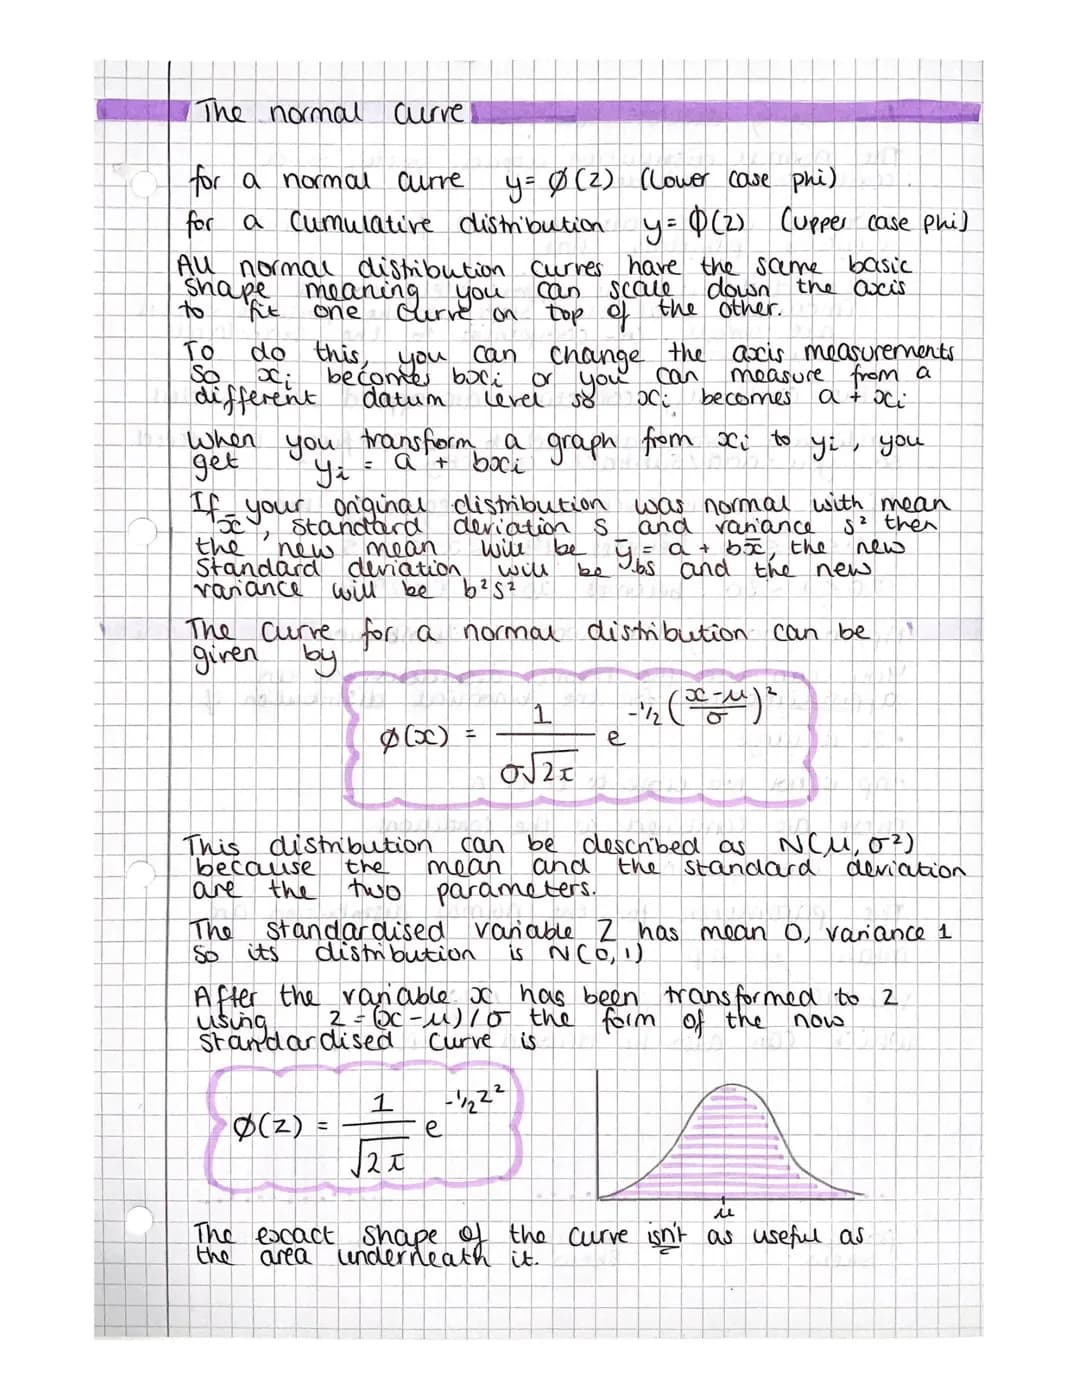 The normal curve
for a normal curve y = ø(z) (lower case phi)
for a cumulative distribution y = Φ(z) (upper case phi)
All normal distribution curves have the same basic
shape meaning you can scale down the axis
to fit one curve on top of the other.
To do this, you can change the axis measurements
so xi becomes bxi or you can measure from a
different datum level so xi becomes a + xi
When you transform a graph from xi to yi, you
get yi = a + bxi
If your original distribution was normal with mean
x̄, standard deviation s and variance s² then
the new mean will be ȳ = a + bx̄, the new
standard deviation will be bs and the new
variance will be b²s²
The curve for a normal distribution can be
given by
ø(x) = 1 / σ√2π e^-½ (x-μ / σ)²
This distribution can be described as N(μ, σ²)
because the mean and the standard deviation
are the two parameters.
The standardised variable Z has mean 0, variance 1
so its distribution is N(0,1)
After the variable x has been transformed to z
using z = (x-μ)/σ the form of the now
standardised curve is
ø(z) = 1 / √2π e^-½z²
μ
The excact shape of the curve isn't as useful as
the area underneath it.